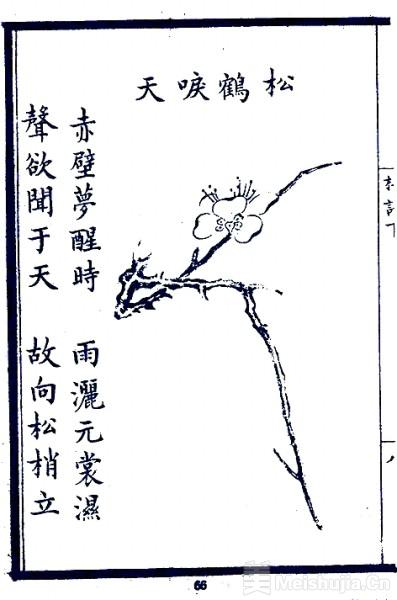 松鶴唳天
赤壁夢醒時 雨灑元裳濕
聲欲聞于天 故向松梢立
66
Meishujia.Cn